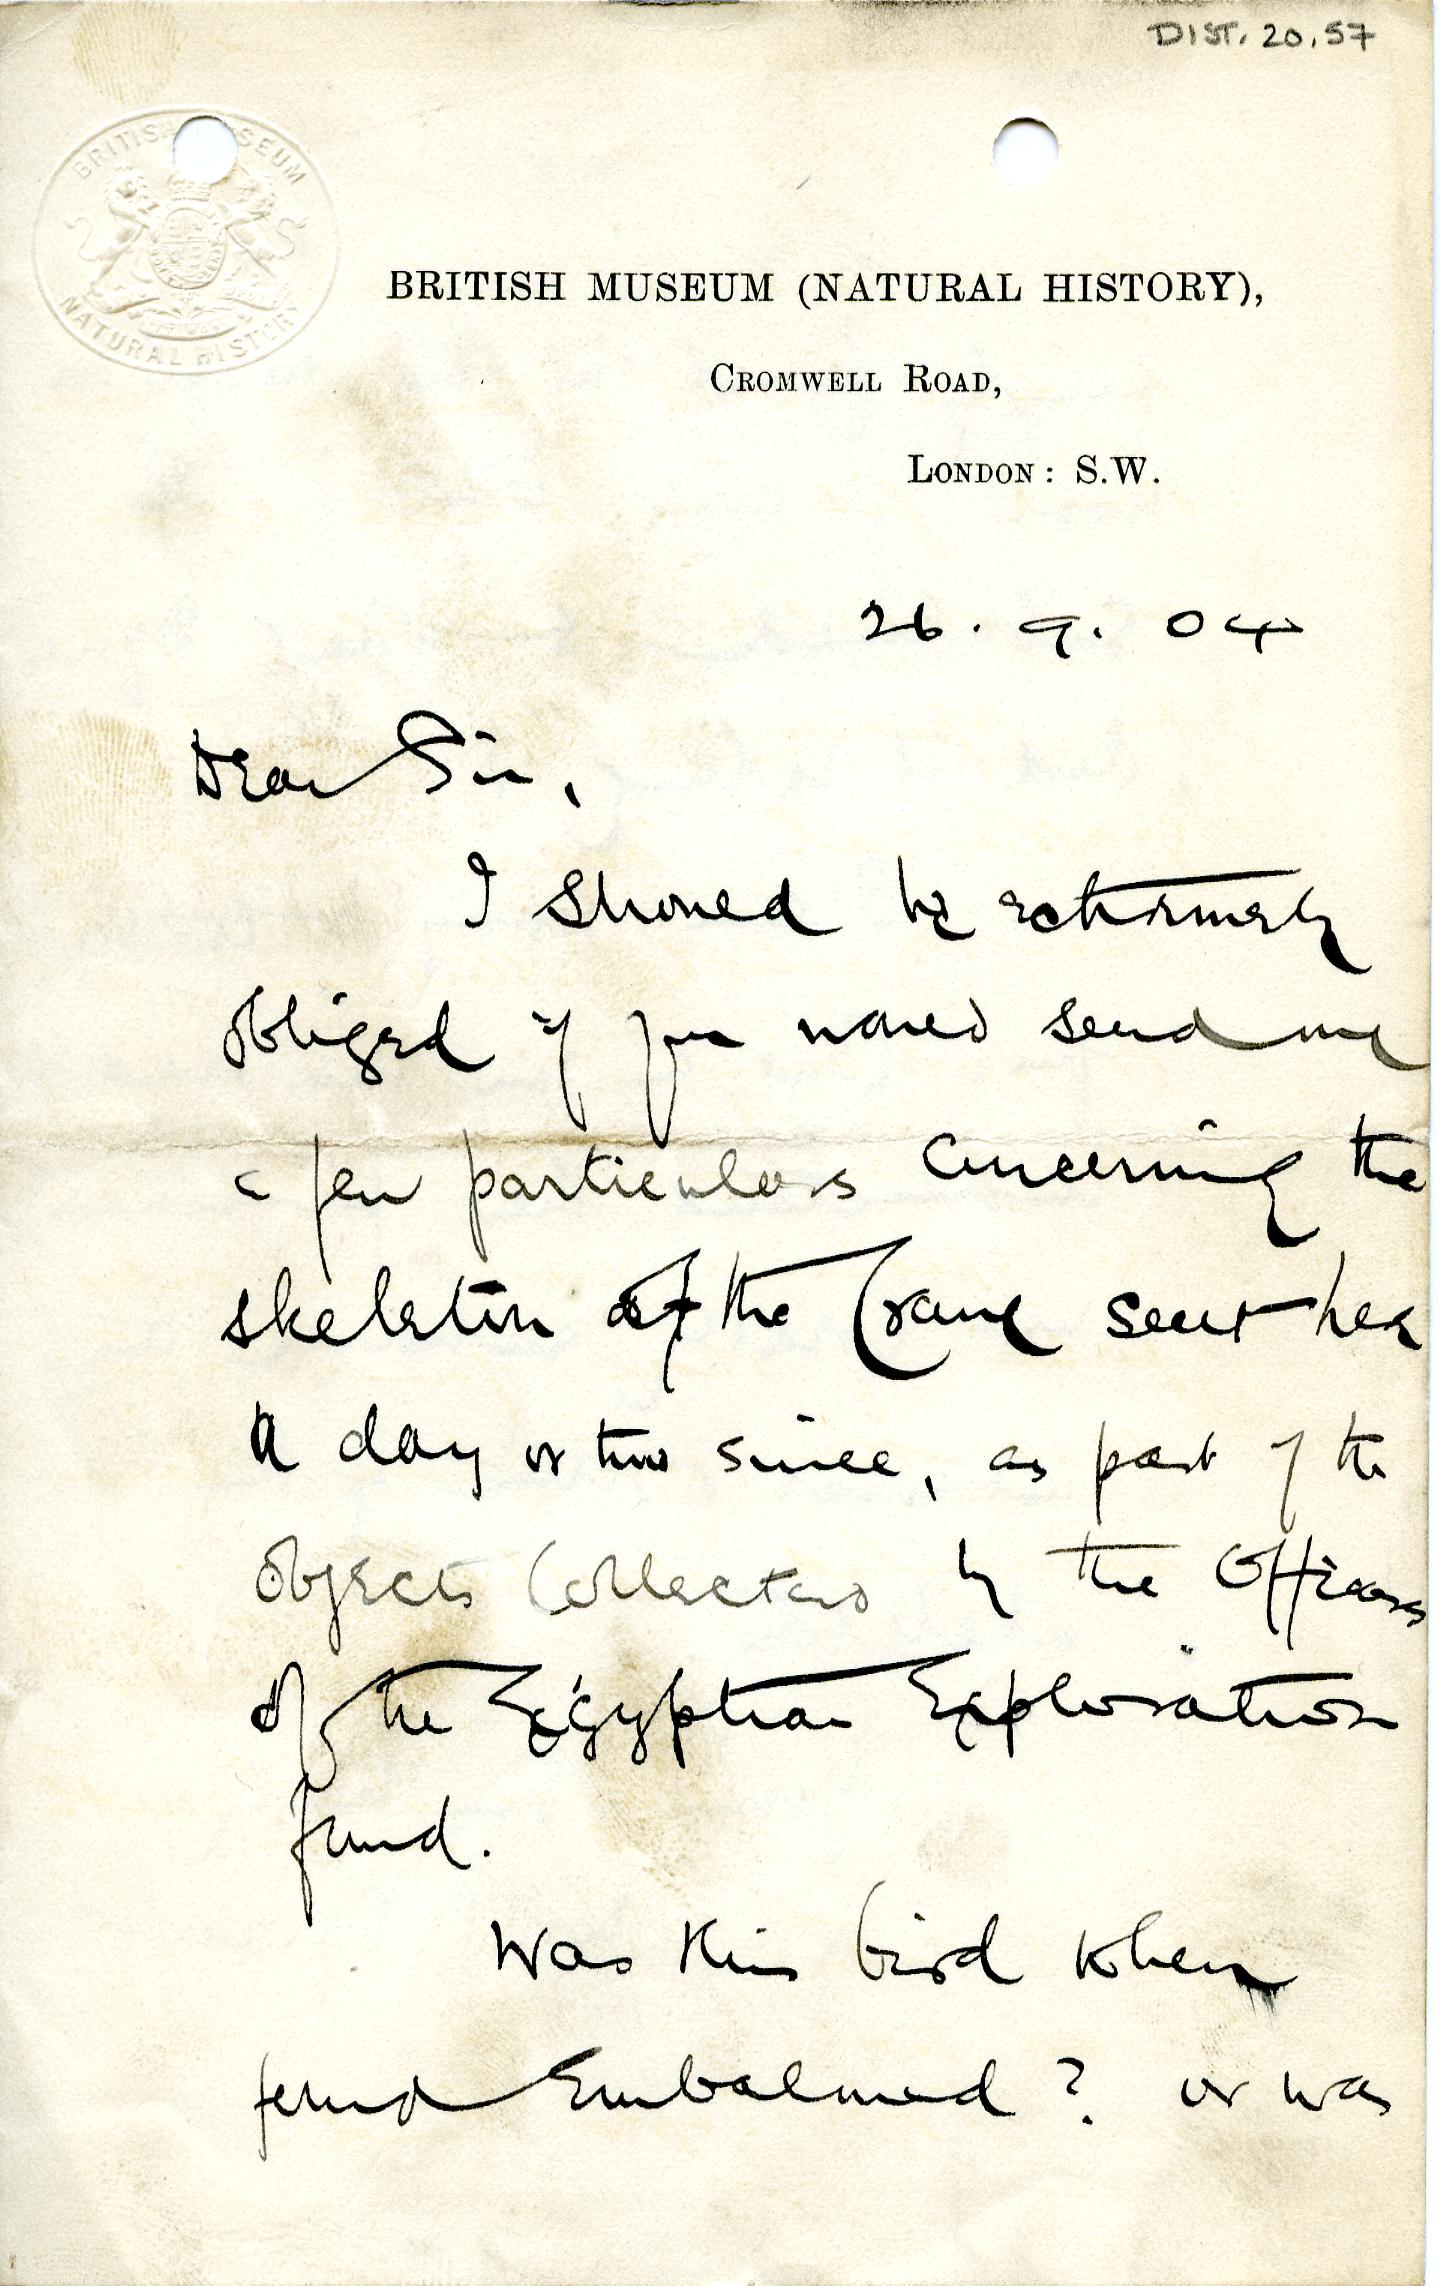 DIST. 20.57
BRITISH MUSEUM
NATURAL HISTORY
BRITISH MUSEUM (NATURAL HISTORY),
CROMWELL ROAD,
LONDON: S.W.
26. 9. 04
Dear Sir,
I should be extremely
obliged if you would send me
a few particulars concerning the
skeleton of the Crane sent here
a day or two since, as part of the
objects collected by the Officers
of the Egyptian Exploration
fund.
Was this bird when
found Embalmed? or was